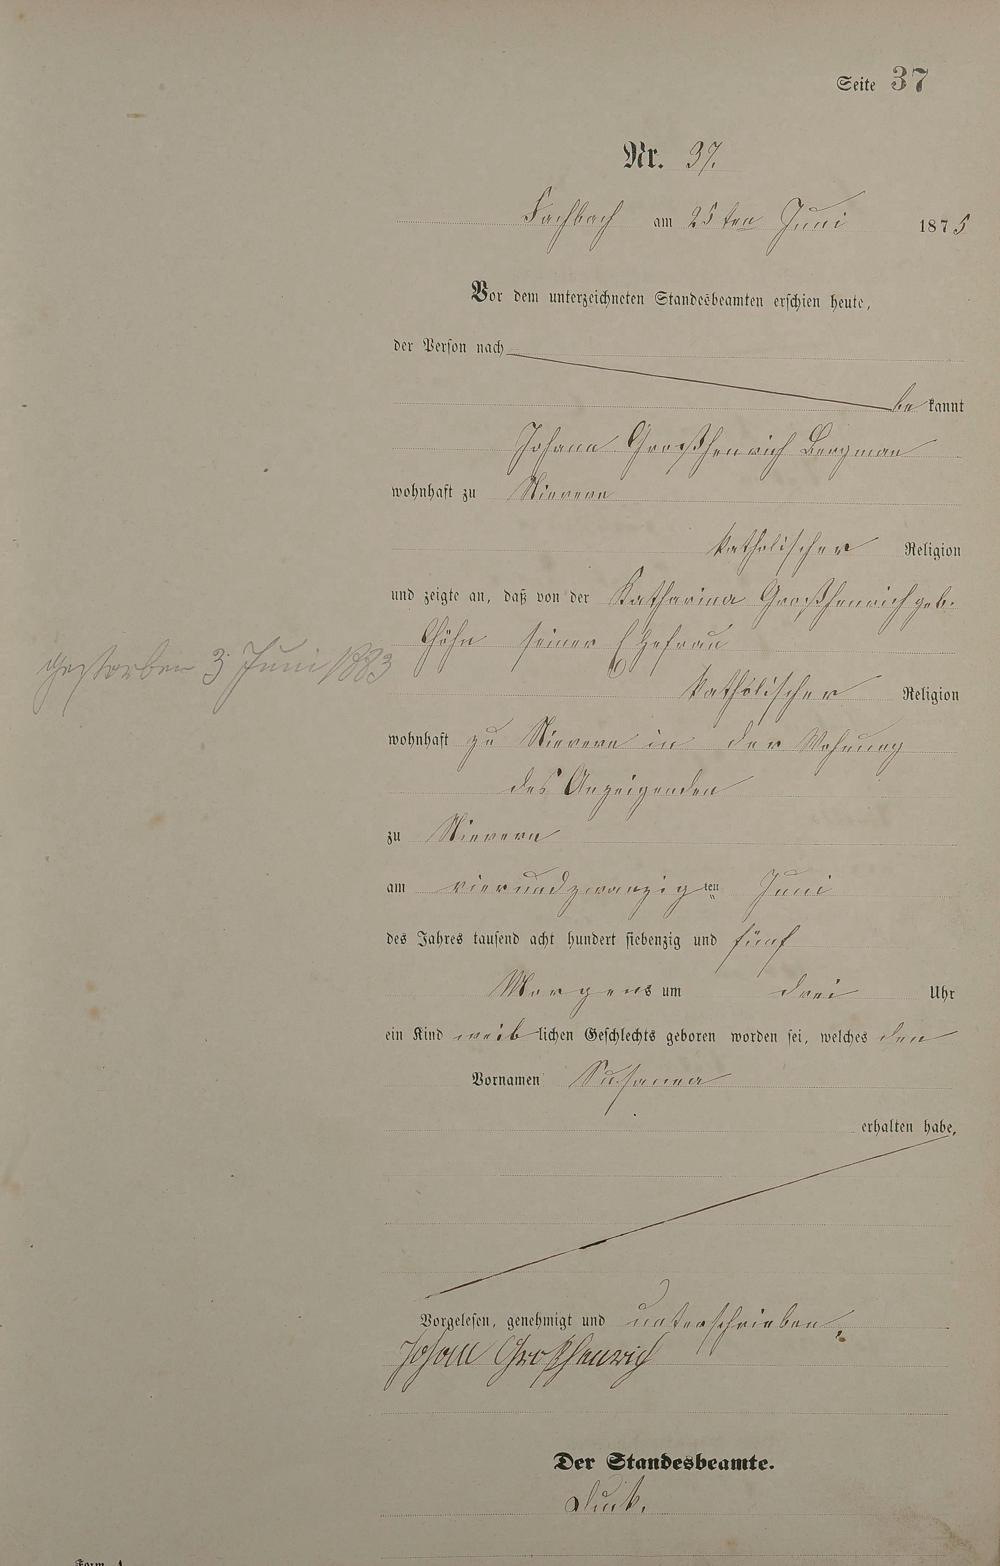 Seite 37
Nr. 37.
Fachbach am 25ten Juni 1875
Vor dem unterzeichneten Standesbeamten erschien heute,
der Person nach
bekannt
Johann Großhenrich Bergman
wohnhaft zu Nievern
katholischer Religion
und zeigte an, daß von der Katharina Großhenrich geb.
Höhn seiner Ehefrau
gestorben 3 Juni 1883
katholischer Religion
wohnhaft zu Nievern in der Wohnung
des Anzeigenden
zu Nievern
am vierundzwanzigten Juni
des Jahres tausend acht hundert siebenzig und fünf
Morgens um drei Uhr
ein Kind weiblichen Geschlechts geboren worden sei, welches den
Vornamen Susanna
erhalten habe,
Vorgelesen, genehmigt und unterschrieben.
Johann Großhenrich
Der Standesbeamte.